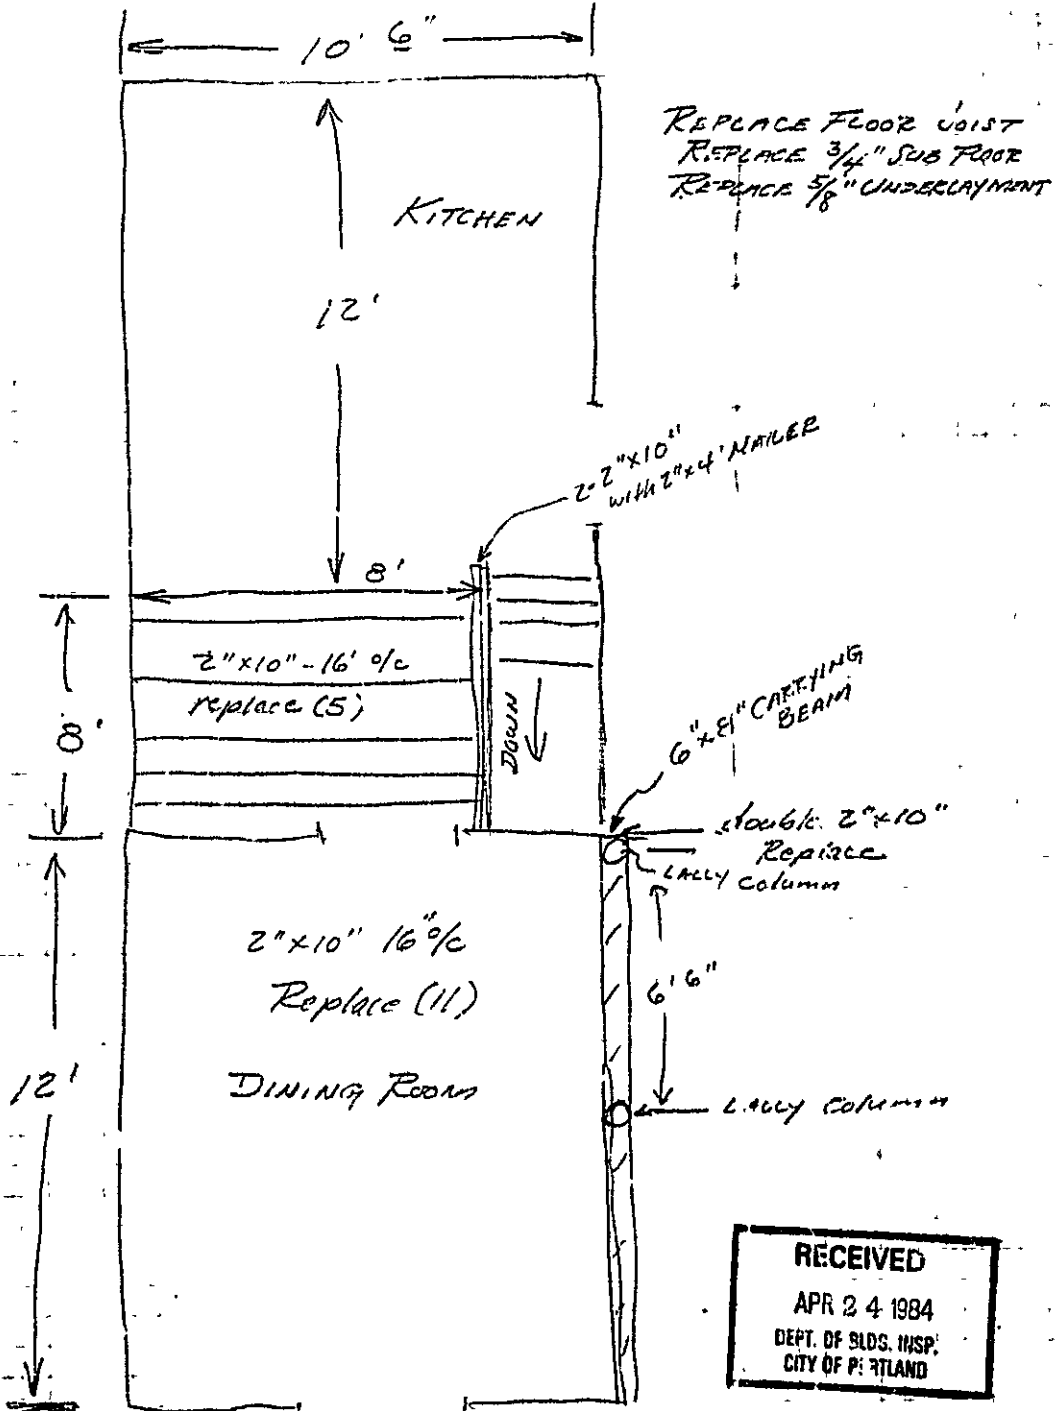 10' 6"
REPLACE FLOOR JOIST
REPLACE 3/4" SUB FLOOR
REPLACE 5/8" UNDERLAYMENT
KITCHEN
12'
2-2"x10"
with 2"x4" NAILER
8'
2"x10"-16' o/c
replace (5)
8'
DOWN
6"x8" CARRYING
BEAM
double 2"x10"
Replace
LALLY column
2"x10" 16" o/c
Replace (11)
6'6"
12'
DINING ROOM
LALLY column
RECEIVED
APR 24 1984
DEPT. OF BLDG. INSP.
CITY OF PORTLAND